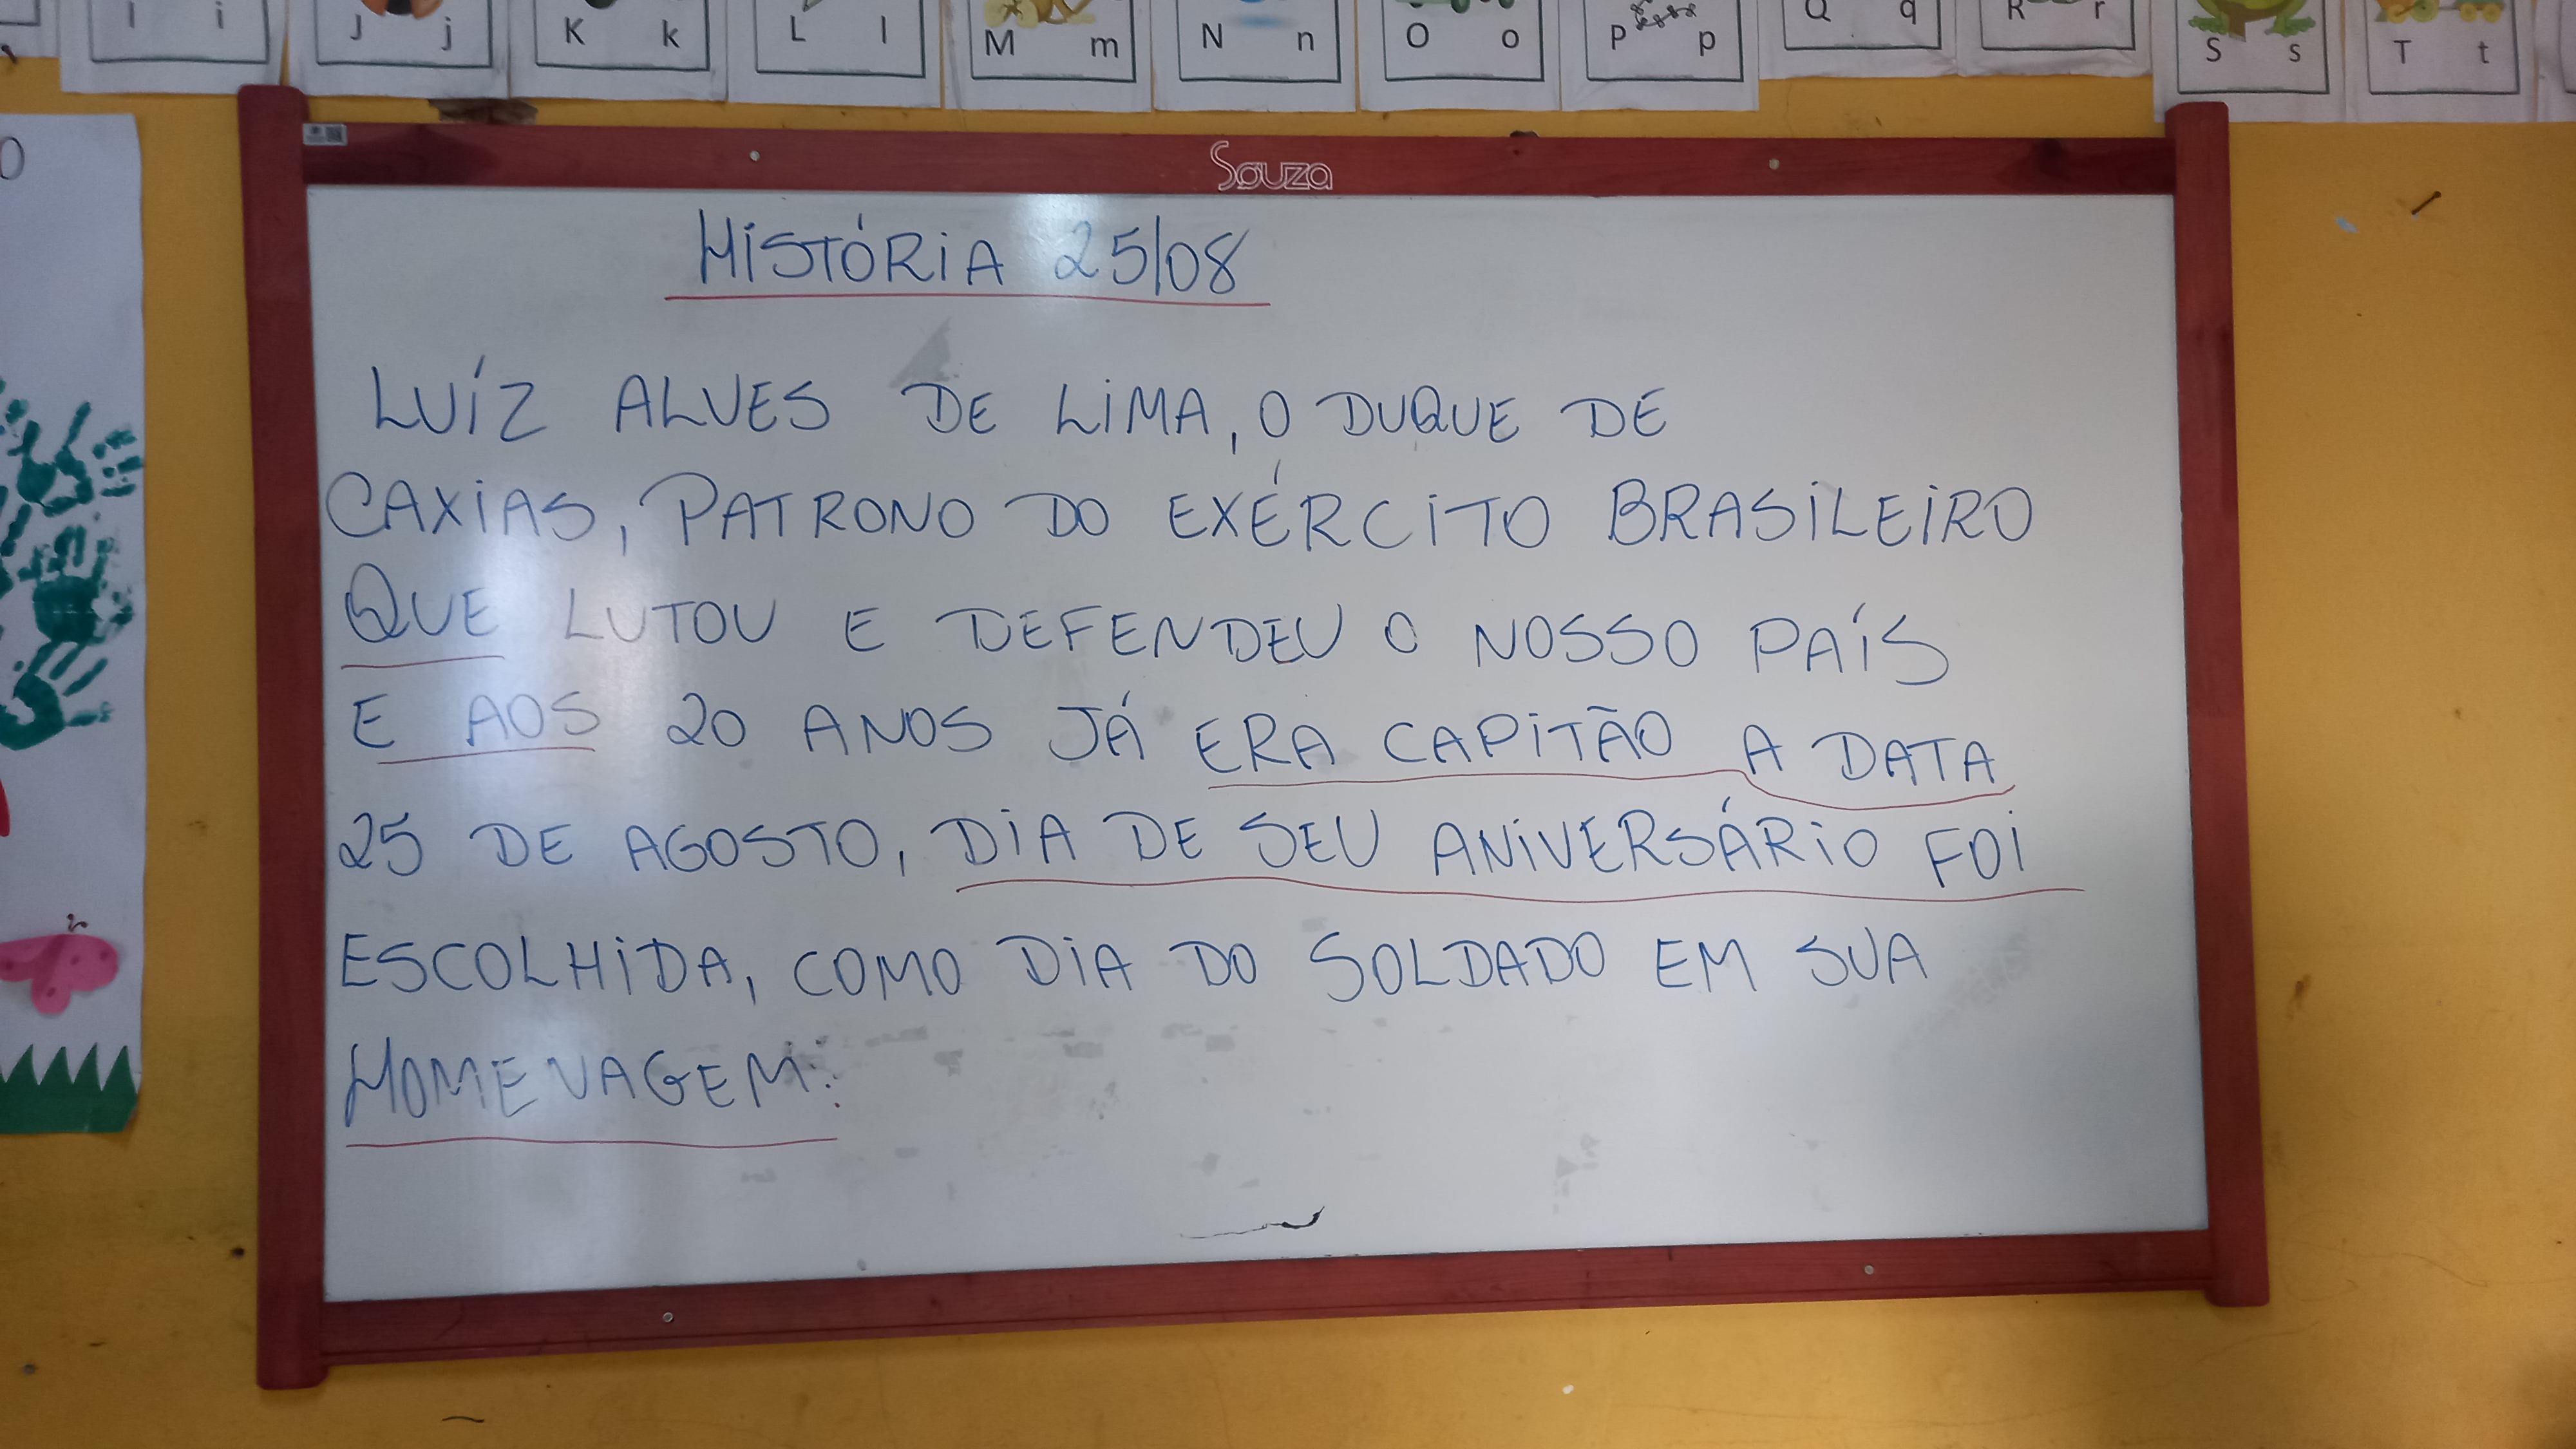 I i J j K k L l M m N n O o P p Q q R r S s T t
O
Souza
HISTÓRIA 25/08
LUÍZ ALVES DE LIMA, O DUQUE DE
CAXIAS, PATRONO DO EXÉRCITO BRASILEIRO
QUE LUTOU E DEFENDEU O NOSSO PAÍS
E AOS 20 ANOS JÁ ERA CAPITÃO A DATA
25 DE AGOSTO, DIA DE SEU ANIVERSÁRIO FOI
ESCOLHIDA, COMO DIA DO SOLDADO EM SUA
HOMENAGEM: